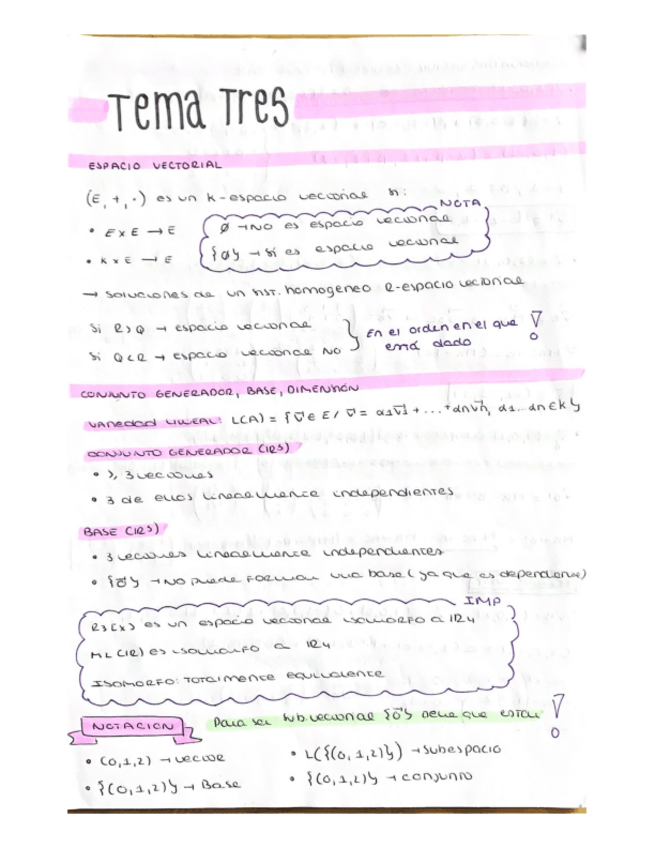 Tema Tres
ESPACIO VECTORIAL
(E, +, ·) es un K-espacio vectorial si:
NOTA
• E x E → E
∅ → NO es espacio vectorial
• K x E → E
{∅} → Sí es espacio vectorial
→ soluciones de un sist. homogéneo R-espacio vectorial
Si R>Q → espacio vectorial
Si Q<R → espacio vectorial NO
En el orden en el que
está dado
CONJUNTO GENERADOR, BASE, DIMENSIÓN
VARIEDAD LINEAL: L(A) = {v⃗ ∈ E / v⃗ = α1v⃗1 + ... + αnv⃗n, α1...αn ∈ K}
CONJUNTO GENERADOR (IR3)
• ≥ 3 vectores
• 3 de ellos linealmente independientes
BASE (IR3)
• 3 vectores linealmente independientes
• {0⃗} → NO puede formar una base (ya que es dependiente)
IMP
R3[x] es un espacio vectorial isomorfo a IR4
(IR) es isomorfo a IR4
ISOMORFO: totalmente equivalente
Para ser sub.vectorial {0⃗} tiene que estar
NOTACION
• (0,1,2) → vector
• L({(0,1,2)}) → subespacio
• {(0,1,2)} → Base
• {(0,1,2)} → conjunto